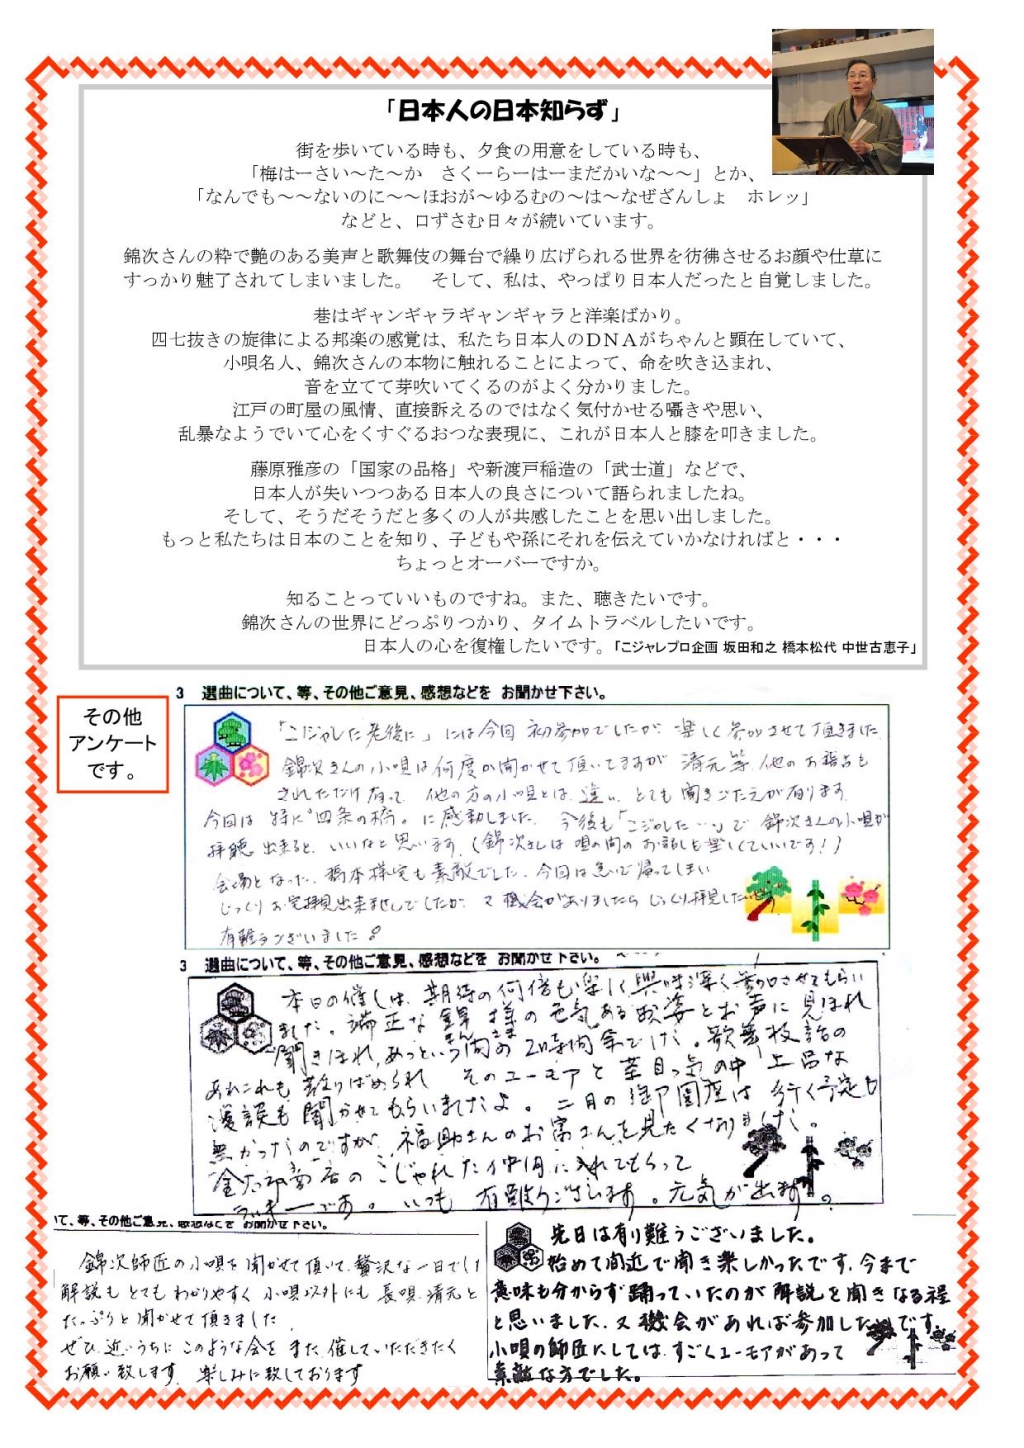 「日本人の日本知らず」
街を歩いている時も、夕食の用意をしている時も、
「梅はーさい～た～か　さくーらーはーまだかいな～～」とか、
「なんでも～～ないのに～～ほおが～ゆるむの～は～なぜざんしょ　ホレッ」
などと、口ずさむ日々が続いています。
錦次さんの粋で艶のある美声と歌舞伎の舞台で繰り広げられる世界を彷彿させるお顔や仕草に
すっかり魅了されてしまいました。　そして、私は、やっぱり日本人だったと自覚しました。
巷はギャンギャラギャンギャラと洋楽ばかり。
四七抜きの旋律による邦楽の感覚は、私たち日本人のＤＮＡがちゃんと顕在していて、
小唄名人、錦次さんの本物に触れることによって、命を吹き込まれ、
音を立てて芽吹いてくるのがよく分かりました。
江戸の町屋の風情、直接訴えるのではなく気付かせる囁きや思い、
乱暴なようでいて心をくすぐるおつな表現に、これが日本人と膝を叩きました。
藤原雅彦の「国家の品格」や新渡戸稲造の「武士道」などで、
日本人が失いつつある日本人の良さについて語られましたね。
そして、そうだそうだと多くの人が共感したことを思い出しました。
もっと私たちは日本のことを知り、子どもや孫にそれを伝えていかなければと・・・
ちょっとオーバーですか。
知ることっていいものですね。また、聴きたいです。
錦次さんの世界にどっぷりつかり、タイムトラベルしたいです。
日本人の心を復権したいです。「こジャレプロ企画 坂田和之 橋本松代 中世古恵子」
その他
アンケート
です。
3　選曲について、等、その他ご意見、感想などを　お聞かせ下さい。
「こジャレた老後に」には今回 初参加でしたが 楽しく参加させて頂きました
錦次さんの小唄は何度か聞かせて頂いてますが 清元等 他のお稽古も
されただけ有って 他の方の小唄とは 違い とても聞きごたえが有ります
今回は 特に"四条の橋"に感動しました。今後も「こジャレた…」で 錦次さんの小唄が
拝聴 出来ると いいなと思います (錦次さんは 唄の間の お話しも楽しくていいです！)
会場となった 橋本様宅も素敵でした。今回は急いで帰ってしまい
じっくりお宅拝見出来ませんでしたが 又機会がありましたら じっくり拝見したいです
有難うございました
3　選曲について、等、その他ご意見、感想などを　お聞かせ下さい。
本日の催しは、期待の何倍も楽しく興味深く参加させてもらい
ました。端正な錦様の色気あるお姿とお声に見ほれ
聞きほれ、あっという間の2時間余でした。歌舞伎話の
あれこれも散りばめられ そのユーモアと茶目っ気の中 上品な
漫談も聞かせてもらいましたよ。二月の御園座は 行く予定も
無かったのですが、福助さんのお富さんを見たくなりました。
こじゃれた仲間に入れてもらって
ラッキーです。いつも 有難うございます。元気が出ます
て、等、その他ご意見、感想などを お聞かせ下さい。
錦次師匠の小唄を聞かせて頂いて、贅沢な一日でし
解説もとてもわかりやすく 小唄以外にも 長唄 清元と
たっぷりと聞かせて頂きました
ぜひ 近いうちに このような会を また 催していただきたく
お願い致します 楽しみに致しております
先日は有り難うございました。
始めて間近で聞き楽しかったです。今まで
意味も分からず踊っていたのが解説を聞きなる程
と思いました。又機会があれば参加したいです。
小唄の師匠にしては、すごくユーモアがあって
素敵な方でした。